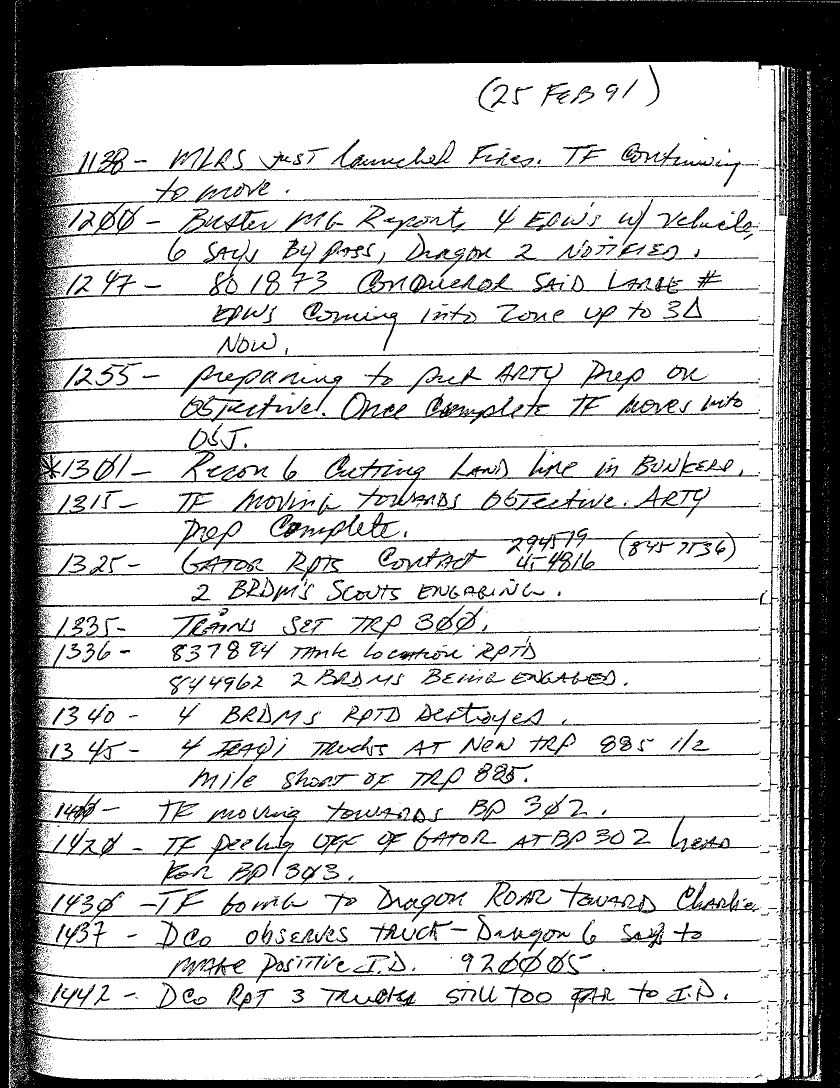 (25 FEB 91)
1138 - MLRS just launched Fires. TF Continuing
to move.
12ØØ - Buster MG Report, 4 EPW's w/ Vehicle,
6 SAYS BY PASS, Dragon 2 NOTIFIED.
1247 - 801873 Conqueror SAID LARGE #
EPWS Coming into Zone up to 3Δ
NOW.
1255 - preparing to put ARTY Prep on
OBJective. Once Complete TF moves into
OBJ.
*13Ø1 - Recon 6 Cutting LAND line in BUNKERS.
1315 - TF Moving towards OBJective. ARTY
Prep Complete.
1325 - GATOR Rpts Contact 294519 454816 (8457536)
2 BRDM's Scouts ENGAGING.
1335 - TRAINS SET TRP 3ØØ.
1336 - 837884 Tank Location RPTD
844962 2 BRDMS BEING ENGAGED.
1340 - 4 BRDMs RPTD Destroyed.
1345 - 4 IRAQi Trucks AT New TRP 885 1/2
mile short OF TRP 885.
TF moving towards BP 3Ø2.
142Ø - TF peeling OFF OF GATOR AT BP 302 head
For BP 3Ø3.
143Ø - TF going to Dragon ROAR TOWARD Charlie
1437 - DCo observes truck - Dragon 6 says to
make positive I.D. 92ØØØ5.
1442 - DCo RPT 3 Trucks STILL TOO FAR to I.D.